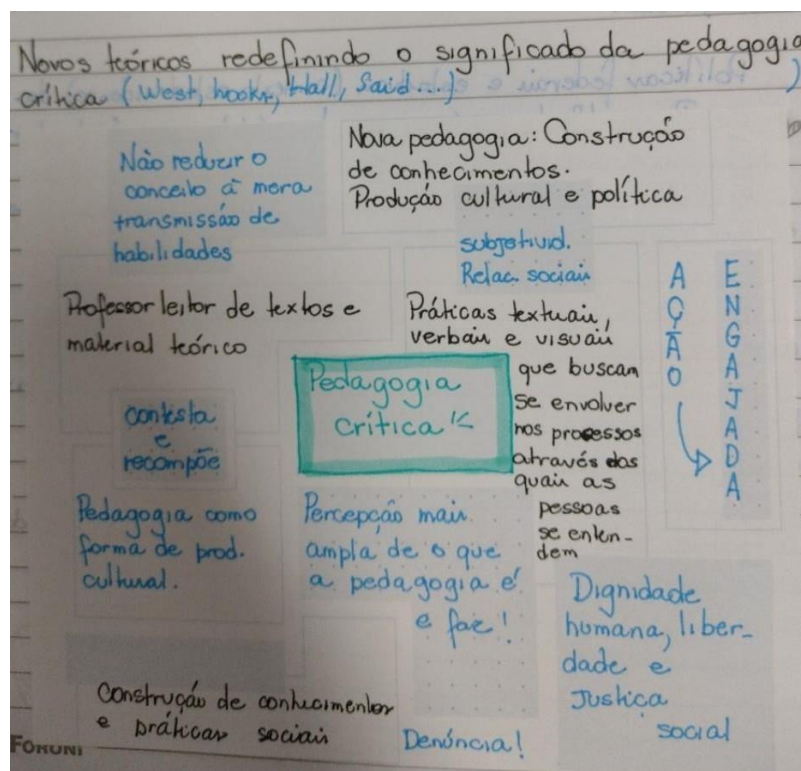 Novos teóricos redefinindo o significado da pedagogia
crítica (West, hooks, Hall, Said...)
Não reduzir o
conceito à mera
transmissão de
habilidades
Nova pedagogia: Construção
de conhecimentos.
Produção cultural e política
subjetivid.
Relac. sociais
Professor leitor de textos e
material teórico
Práticas textuais,
verbais e visuais
que buscam
se envolver
nos processos
através dos
quais as
pessoas
se enten-
dem
AÇÃO
ENGAJADA
Pedagogia
crítica
contesta
e
recompõe
Pedagogia como
forma de prod.
cultural.
Percepção mais
ampla de o que
a pedagogia é
e faz!
Dignidade
humana, liber-
dade e
Justiça
social
Construção de conhecimentos
e práticas sociais
Denúncia!
FORONI